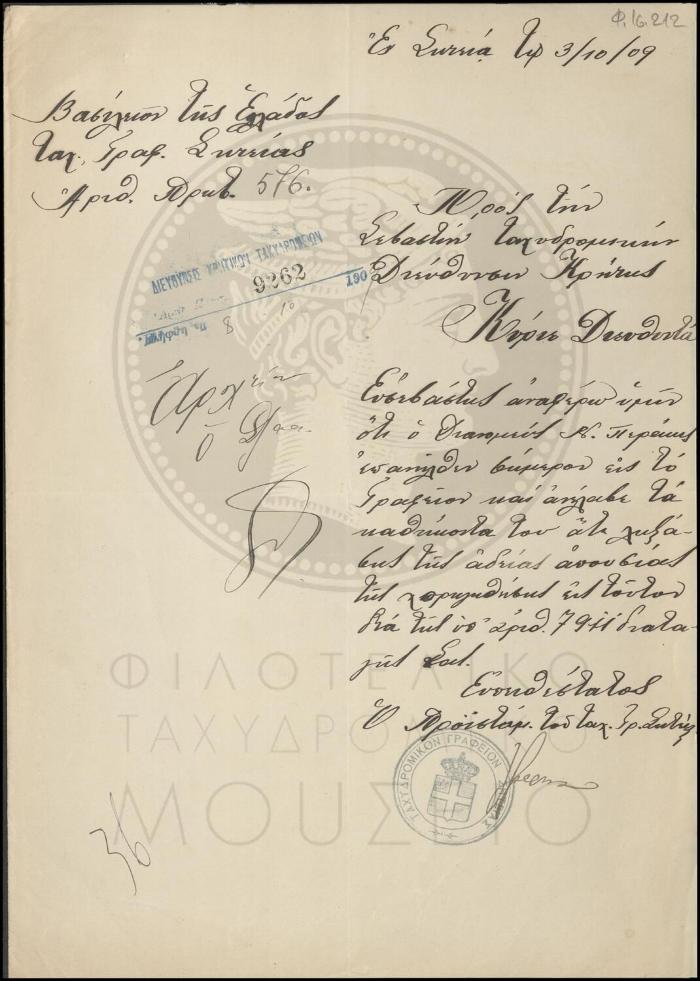 Φ.16.212
Ἐν Σητείᾳ τῇ 3/10/09
Βασίλειον τῆς Ἑλλάδος
Ταχ. Γραφ. Σητείας
Ἀριθ. Πρωτ. 576.
Πρὸς τὴν
Σεβαστὴν Ταχυδρομικὴν
Διεύθυνσιν Κρήτης
ΔΙΕΥΘΥΝΣΙΣ ΚΡΗΤΙΚΩΝ ΤΑΧΥΔΡΟΜΕΙΩΝ
9262
190
8 10
Κύριε Διευθυντά
Ἀρχεῖον
Εὐσεβάστως ἀναφέρω ὑμῖν
ὅτι ὁ διανομεὺς Ν. Περάκης
ἐπανῆλθεν σήμερον εἰς τὸ
Γραφεῖον καὶ ἀνέλαβε τὰ
καθήκοντά του ἅτε ληξά-
σης τῆς ἀδείας ἀπουσίας
τῆς χορηγηθείσης εἰς τοῦτον
διὰ τῆς ὑπ' ἀριθ. 7941 διατα-
γῆς Σας.
Εὐπειθέστατος
Ὁ Προϊστάμ. τοῦ ταχ. Γρ. Σητείας
ΤΑΧΥΔΡΟΜΙΚΟΝ ΓΡΑΦΕΙΟΝ
36
ΦΙΛΟΤΕΛΙΚΟ
ΤΑΧΥΔΡΟΜΙΚΟ
ΜΟΥΣΕΙΟ